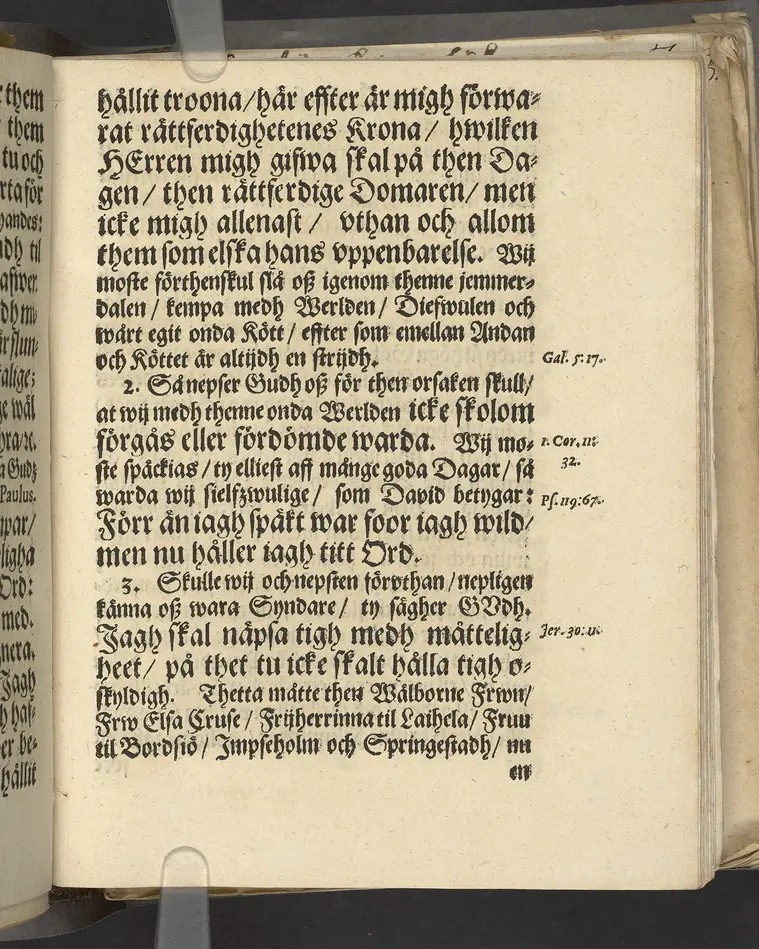 hållit troona/här effter är migh förwa-
rat rättferdighetenes Krona/ hwilken
HErren migh gifwa skal på then Da-
gen/ then rättferdige Domaren/ men
icke migh allenast/ vthan och allom
them som elska hans vppenbarelse. Wij
moste förthenskul slå oß igenom thenne jemmer-
dalen/ kempa medh Werlden/ Diefwulen och
wårt egit onda Kött/ effter som emellan Andan
och Köttet är altijdh en strijdh. Gal. 5:17.
2. Så nepser Gudh oß för then orsaken skull/
at wij medh thenne onda Werlden icke skolom
förgås eller fördömde warda. Wij mo- 1. Cor. 11:
ste späckias/ ty elliest aff månge goda Dagar/ så 32.
warda wij sielfzwulige/ som David betygar: Ps. 119:67.
Förr än iagh späkt war foor iagh wild/
men nu håller iagh titt Ord.
3. Skulle wij och nepsten förvthan/ nepligen
känna oß wara Syndare/ ty sägher GVdh.
Jagh skal näpsa tigh medh måttelig- Jer. 30:11.
heet/ på thet tu icke skalt hålla tigh o-
skyldigh. Thetta måtte then Wälborne Frwn/
Frw Elsa Cruse/ Frijherrinna til Laihela/ Fruu
til Bordsiö/ Jmpseholm och Springestadh/ nu
en
them
them
tu och
rta för
adh til
Paulus.
ligha
Ord:
med.
Jagh
hållit